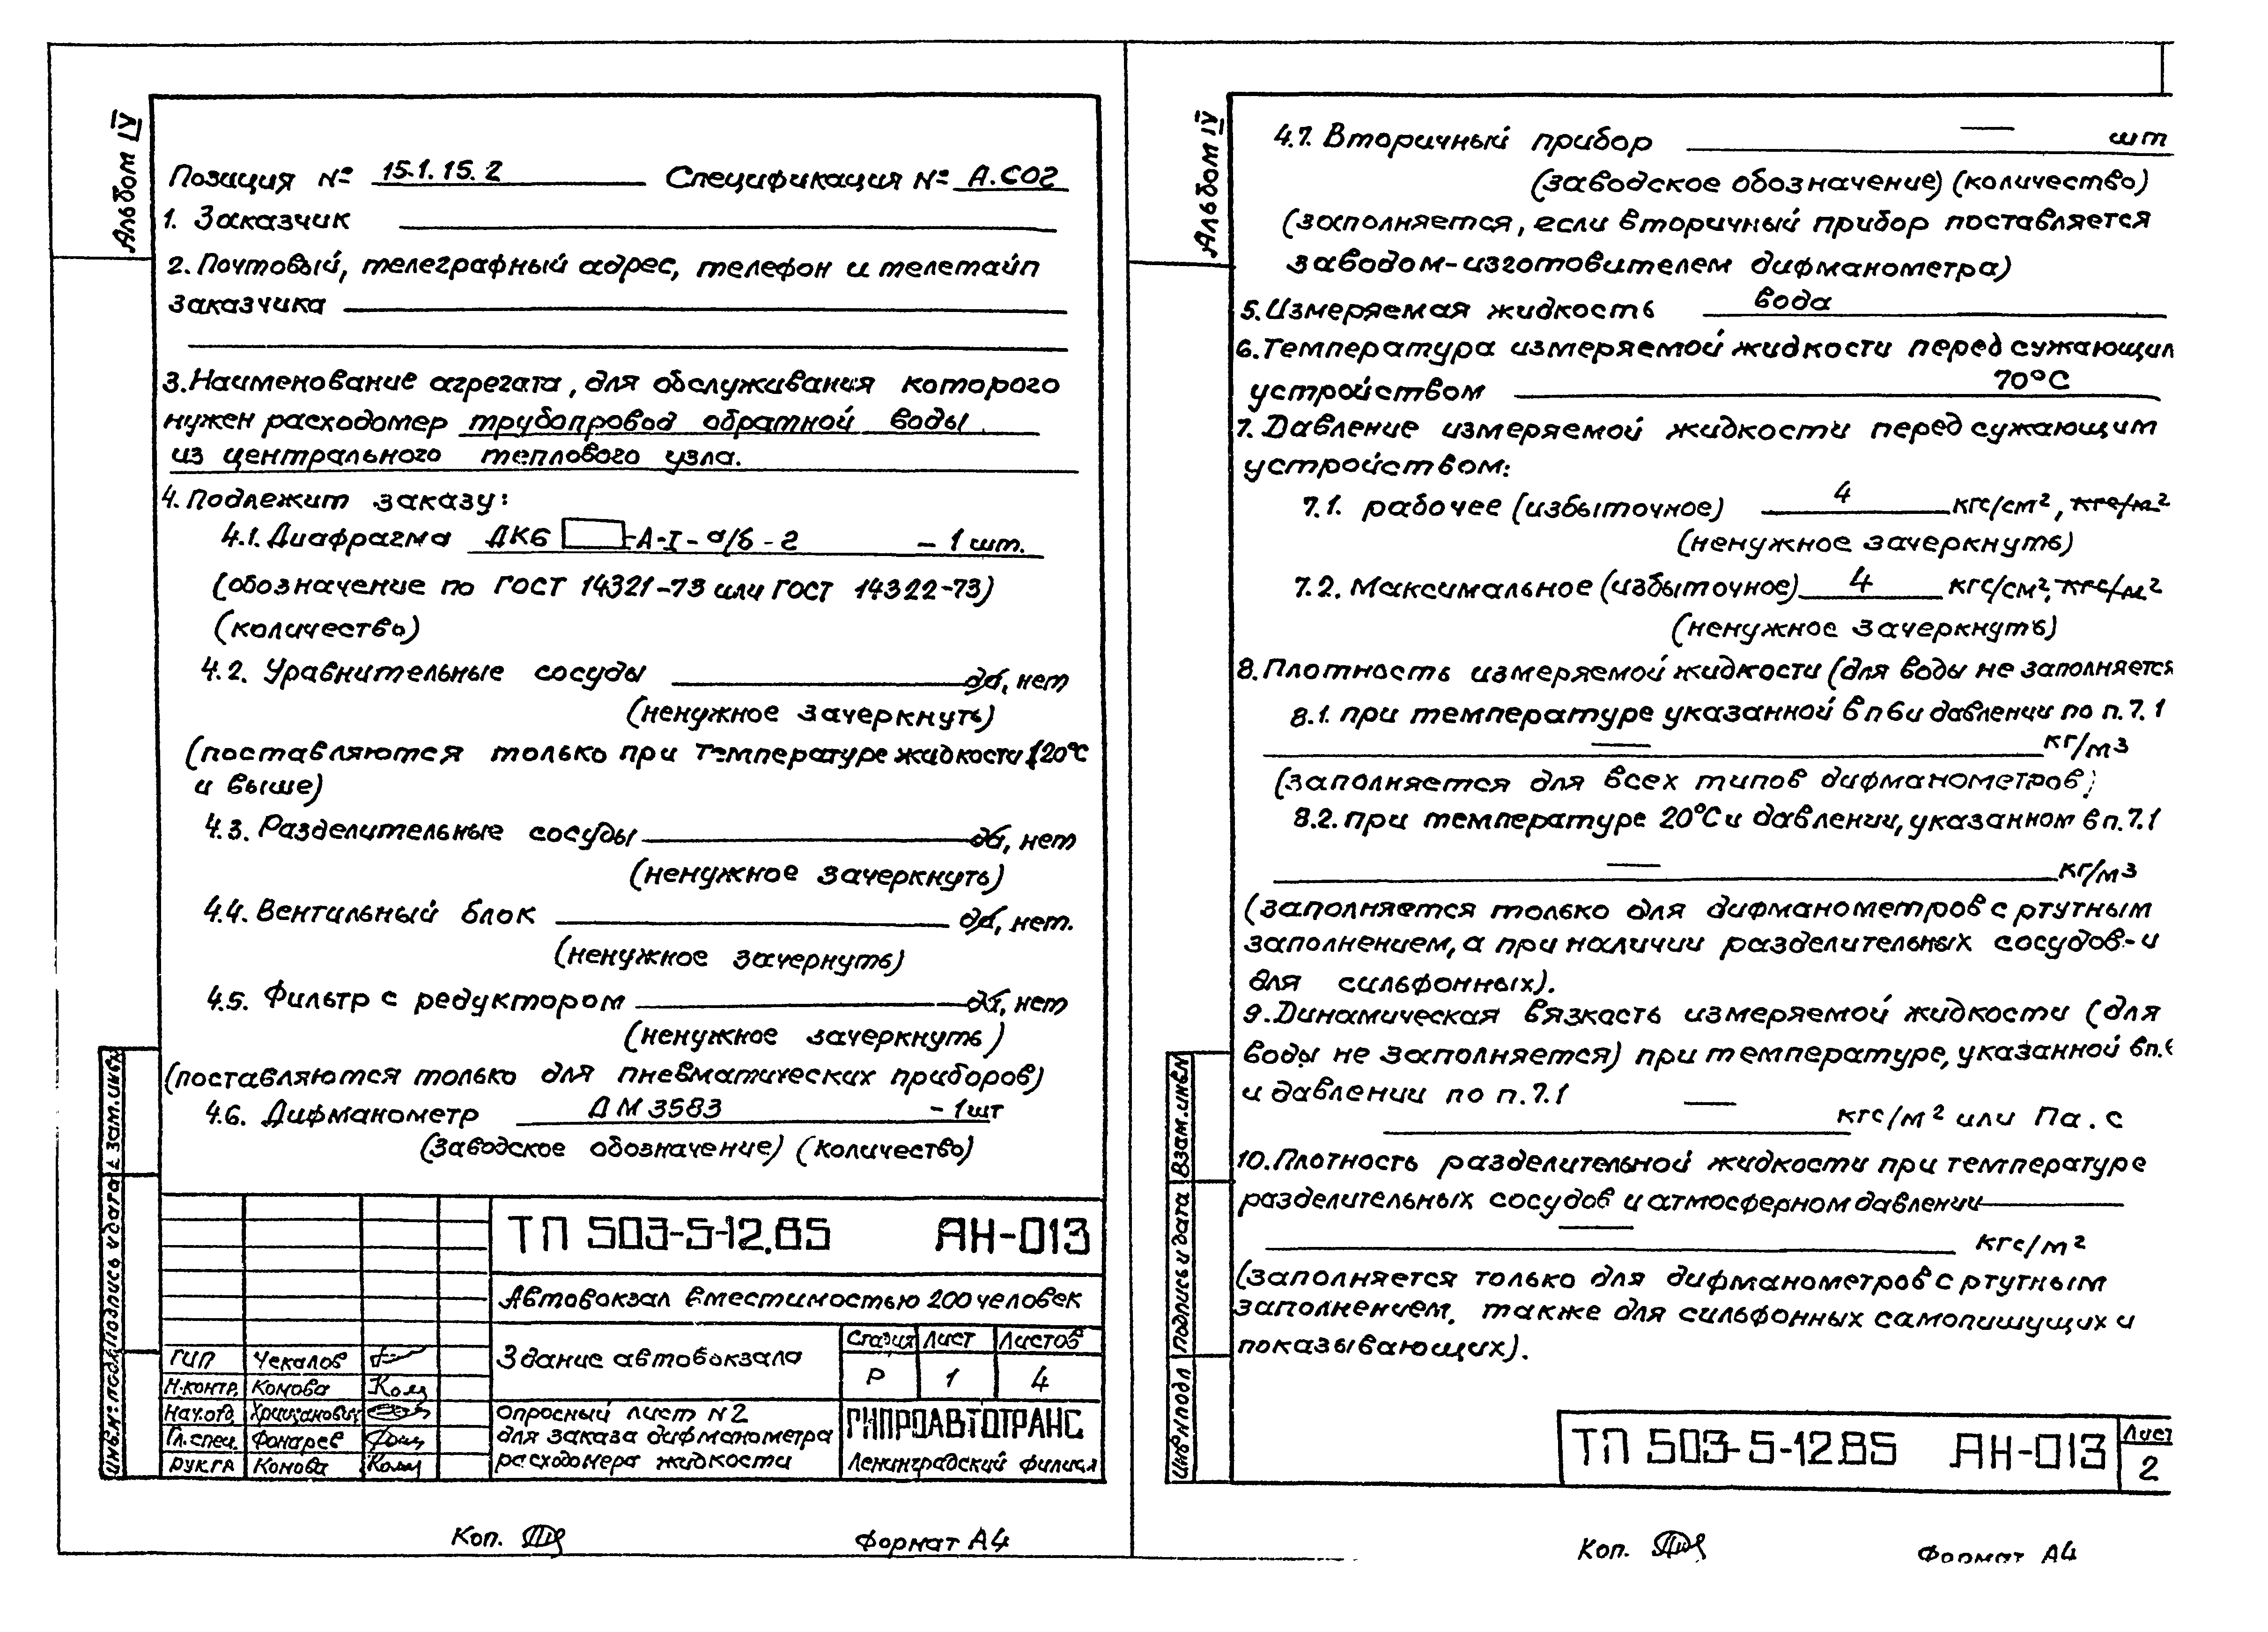 Альбом IV
Позиция № 15.1. 15. 2 Спецификация № А.СО2
1. Заказчик
2. Почтовый, телеграфный адрес, телефон и телетайп
заказчика
3. Наименование агрегата, для обслуживания которого
нужен расходомер трубопровод обратной воды
из центрального теплового узла.
4. Подлежит заказу:
4.1. Диафрагма ДК6 -А-I-а/б-2 - 1 шт.
(обозначение по ГОСТ 14321-73 или ГОСТ 14322-73)
(количество)
4.2. Уравнительные сосуды да, нет
(ненужное зачеркнуть)
(поставляются только при температуре жидкости 120°С
и выше)
4.3. Разделительные сосуды да, нет
(ненужное зачеркнуть)
4.4. Вентильный блок да, нет.
(ненужное зачернуть)
4.5. Фильтр с редуктором да, нет
(ненужное зачеркнуть)
(поставляются только для пневматических приборов)
4.6. Дифманометр ДМ 3583 - 1шт
(заводское обозначение) (количество)
ТП 503-5-12.85 АН-013
Автовокзал вместимостью 200 человек
Здание автовокзала
Стадия Лист Листов
Р 1 4
ГИП Чекалов
Н.контр. Комова
Нач.отд.
Гл.спец. Фонарев
Рук.гр. Комова
Опросный лист N2
для заказа дифманометра
расходомера жидкости
ГИПРОАВТОТРАНС
Ленинградский филиал
Инв.N: подл. Подпись и дата Взам.инв.N
Коп.
Формат А4
Альбом IV
4.7. Вторичный прибор — шт
(заводское обозначение) (количество)
(заполняется, если вторичный прибор поставляется
заводом-изготовителем дифманометра)
5. Измеряемая жидкость вода
6. Температура измеряемой жидкости перед сужающим
устройством 70°С
7. Давление измеряемой жидкости перед сужающим
устройством:
7.1. рабочее (избыточное) 4 кгс/см², кгс/м²
(ненужное зачеркнуть)
7.2. Максимальное (избыточное) 4 кгс/см², кгс/м²
(ненужное зачеркнуть)
8. Плотность измеряемой жидкости (для воды не заполняется
8.1. при температуре указанной в п 6 и давлении по п. 7.1
— кг/м³
(заполняется для всех типов дифманометров)
8.2. при температуре 20°С и давлении, указанном в п. 7.1
— кг/м³
(заполняется только для дифманометров с ртутным
заполнением, а при наличии разделительных сосудов - и
для сильфонных).
9. Динамическая вязкасть измеряемой жидкости (для
воды не заполняется) при температуре, указанной в п.6
и давлении по п. 7.1
— кгс/м² или Па. с
10. Плотность разделительной жидкости при температуре
разделительных сосудов и атмосферном давлении
— кгс/м²
(заполняется только для дифманометров с ртутным
заполнением, также для сильфонных самопишущих и
показывающих).
ТП 503-5-12.85 АН-013
Лист
2
Инв.N подл Подпись и дата Взам.инв.N
Коп.
Формат А4